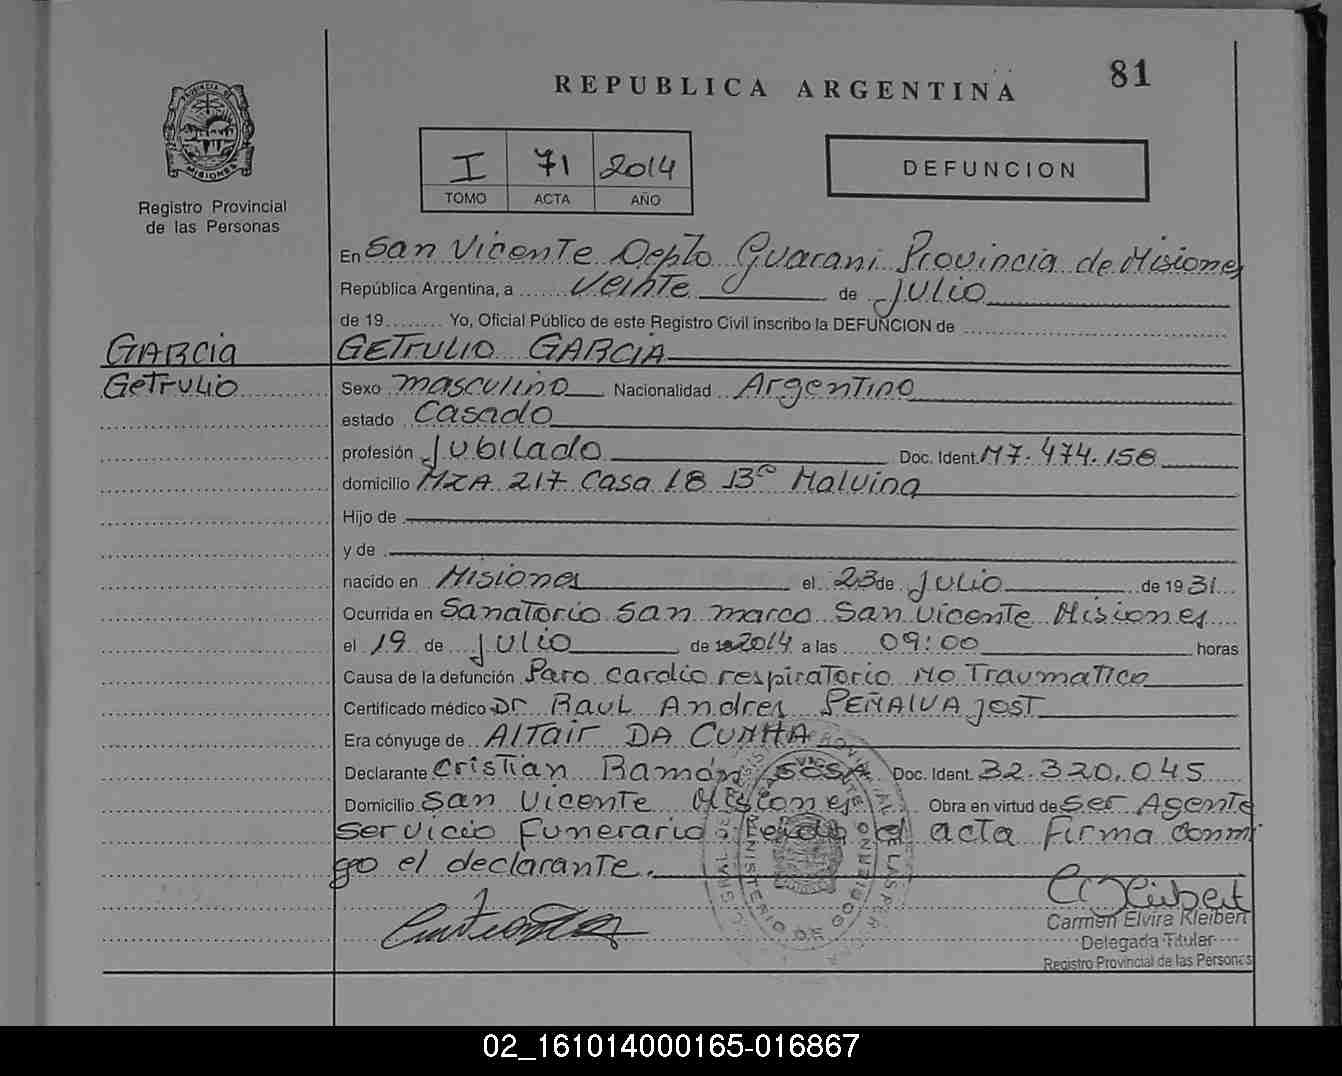 81
REPUBLICA ARGENTINA
I 71 2014
TOMO ACTA AÑO
DEFUNCION
MISIONES
Registro Provincial
de las Personas
En San Vicente Depto Guarani Provincia de Misiones
República Argentina, a veinte de Julio
de 19........ Yo, Oficial Público de este Registro Civil inscribo la DEFUNCION de
GARCIA
GETRULIO GARCIA
GETRULIO
Sexo masculino Nacionalidad Argentino
estado Casado
profesión Jubilado Doc. Ident. M7.474.158
domicilio MZA 217 Casa 18 Bº Malvina
Hijo de
y de
nacido en Misiones el 23 de Julio de 1931
Ocurrida en Sanatorio San marco San Vicente Misiones
el 19 de Julio de 2014 a las 09:00 horas
Causa de la defunción Paro cardio respiratorio No Traumatico
Certificado médico Dr Raul Andres PEÑALVA JOST
Era cónyuge de ALTAIR DA CUNHA
Declarante Cristian Ramón SOSA Doc. Ident. 32.320.045
Domicilio San Vicente Misiones Obra en virtud de Ser Agente
Servicio Funerario el acta Firma conmi
go el declarante.
Carmen Elvira Kleibert
Delegada Titular
Registro Provincial de las Personas
02_161014000165-016867